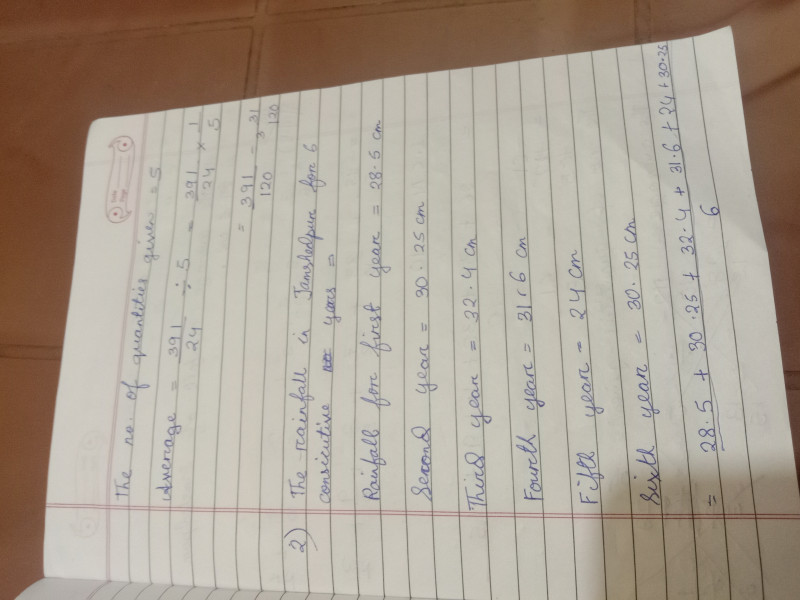 The no. of quantities given = 5
Average = 391/24 ÷ 5 = 391/24 × 1/5
= 391/120 = 3 31/120
2) The rainfall in Jamshedpur for 6
consicutive years =
Rainfall for first year = 28.5 cm
Second year = 30.25 cm
Third year = 32.4 cm
Fourth year = 31.6 cm
Fifth year = 24 cm
Sixth year = 30.25 cm
= 28.5 + 30.25 + 32.4 + 31.6 + 24 + 30.25
6